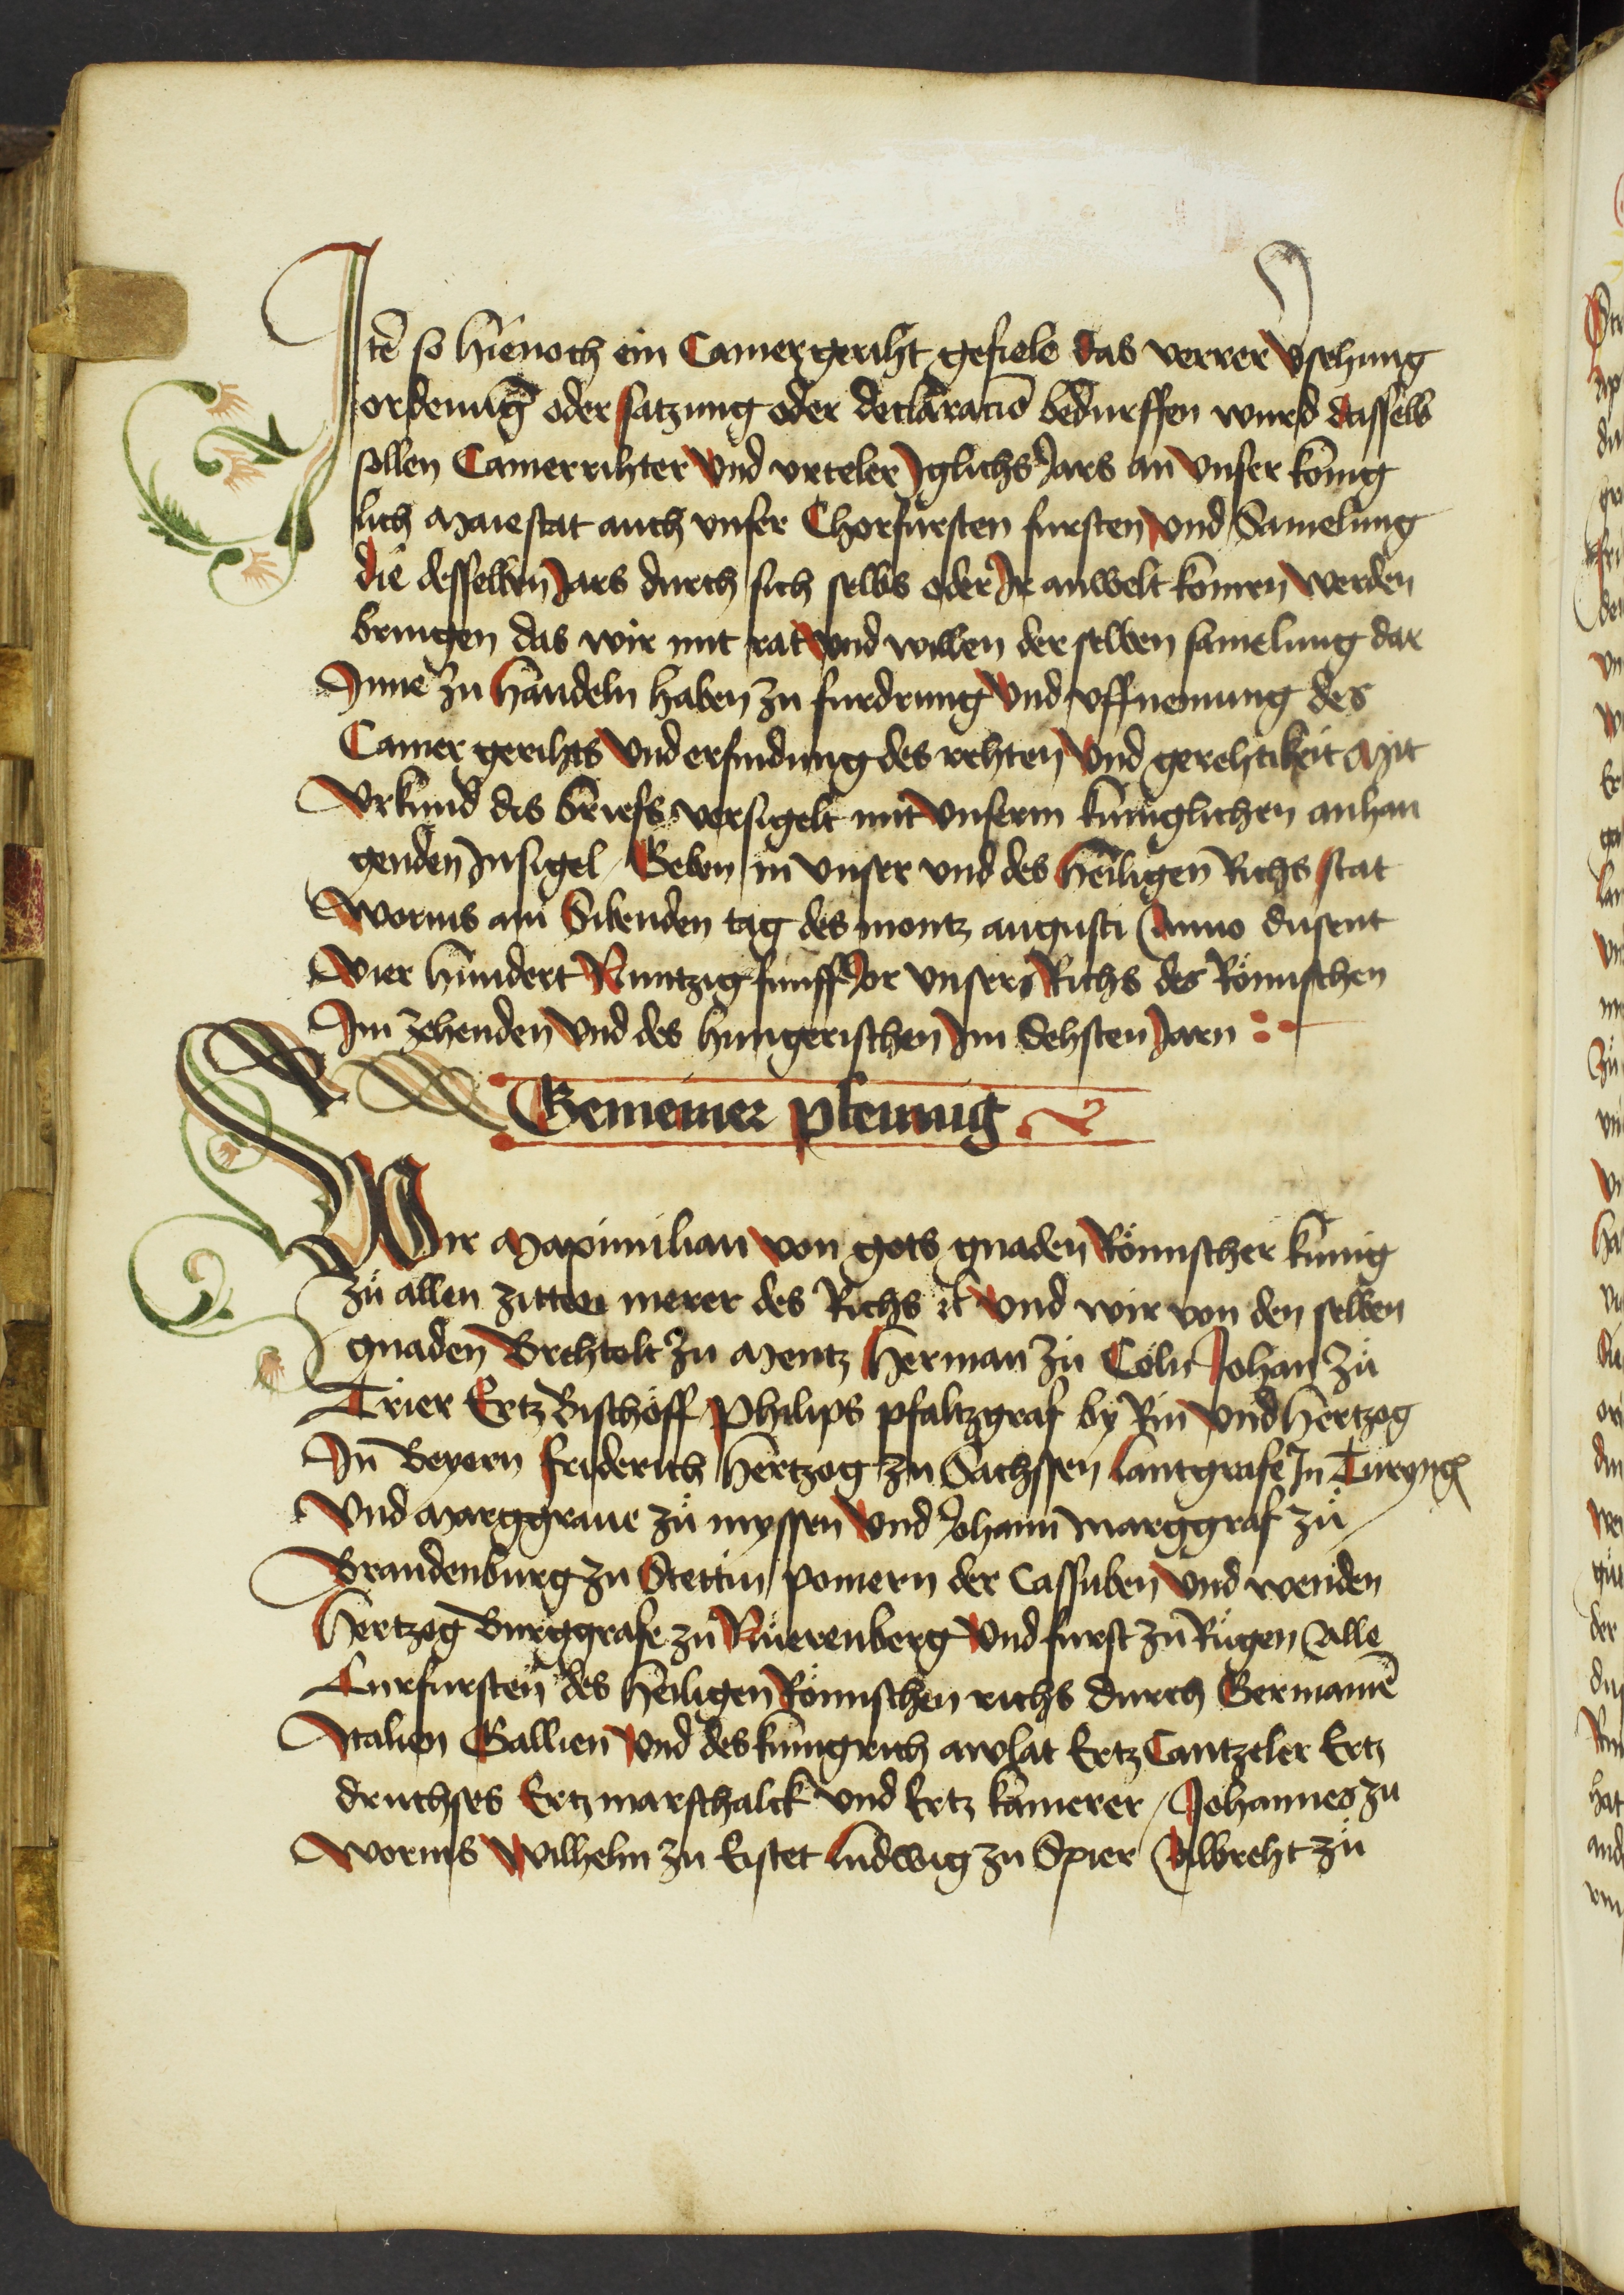 Itē so hienoch ein Camergeriht gefiele das verrer vsehung
ordenūg oder satzung oder declaracio bedurffen wurd dasselb
sollen Camerrihter vnd vrteler Iglichs Jars an vnser konig
lich Maiestat auch vnser Chorfursten fursten vnd Samelung
die desselben Jars durch sich selbs oder Ir anwelt komen werden
bringen das wir mit rat vnd willen der selben samelung dar
Inne zu handeln haben zu furdrung vnd vffnemung des
Camer gerihts vnd erfindung des rehten vnd gerehtikeit Mit
Vrkund dis briefs versigelt mit vnserm kuniglichen anhan
genden Insigel / Geben in vnser vnd des heiligen Richs stat
Worms am Sibenden tag des montz augusti Anno dusent
Vier hundert Nuntzig funff Jor vnsers Richs des Römischen
Im zehenden vnd des hungerischen Im Sehsten Jarn
Gemeiner pfennig
Wir Maximilian von gots gnaden Römischer kunig
zů allen zitten merer des Richs ꝛc vnd wir von den selben
gnaden Brehtolt zu Mentz Herman zů Cöln Johan zů
Trier Ertz Bischöff Philips pfaltzgraf by Rin vnd hertzog
In Beyern friderich Hertzog zu Sachssen Lantgrafe In Turyngē
Vnd Marggraue zů myssen vnd Johann Marggraf zů
Brandenburg zu Stettin pomern der Cassuben vnd wenden
Hertzog Burggrafe zů Nůerenberg vnd furst zů Růgen Alle
Curfursten des heiligen Römischen richs durch Germaniē
Italien Gallien vnd des kunigrich arelat Ertz Cantzeler Ertz
druchses Ertz marschalck vnd Ertz kamerer / Johannes zu
Worms Wilhelm zu Eistet Ludwig zu Spier Albreht zů